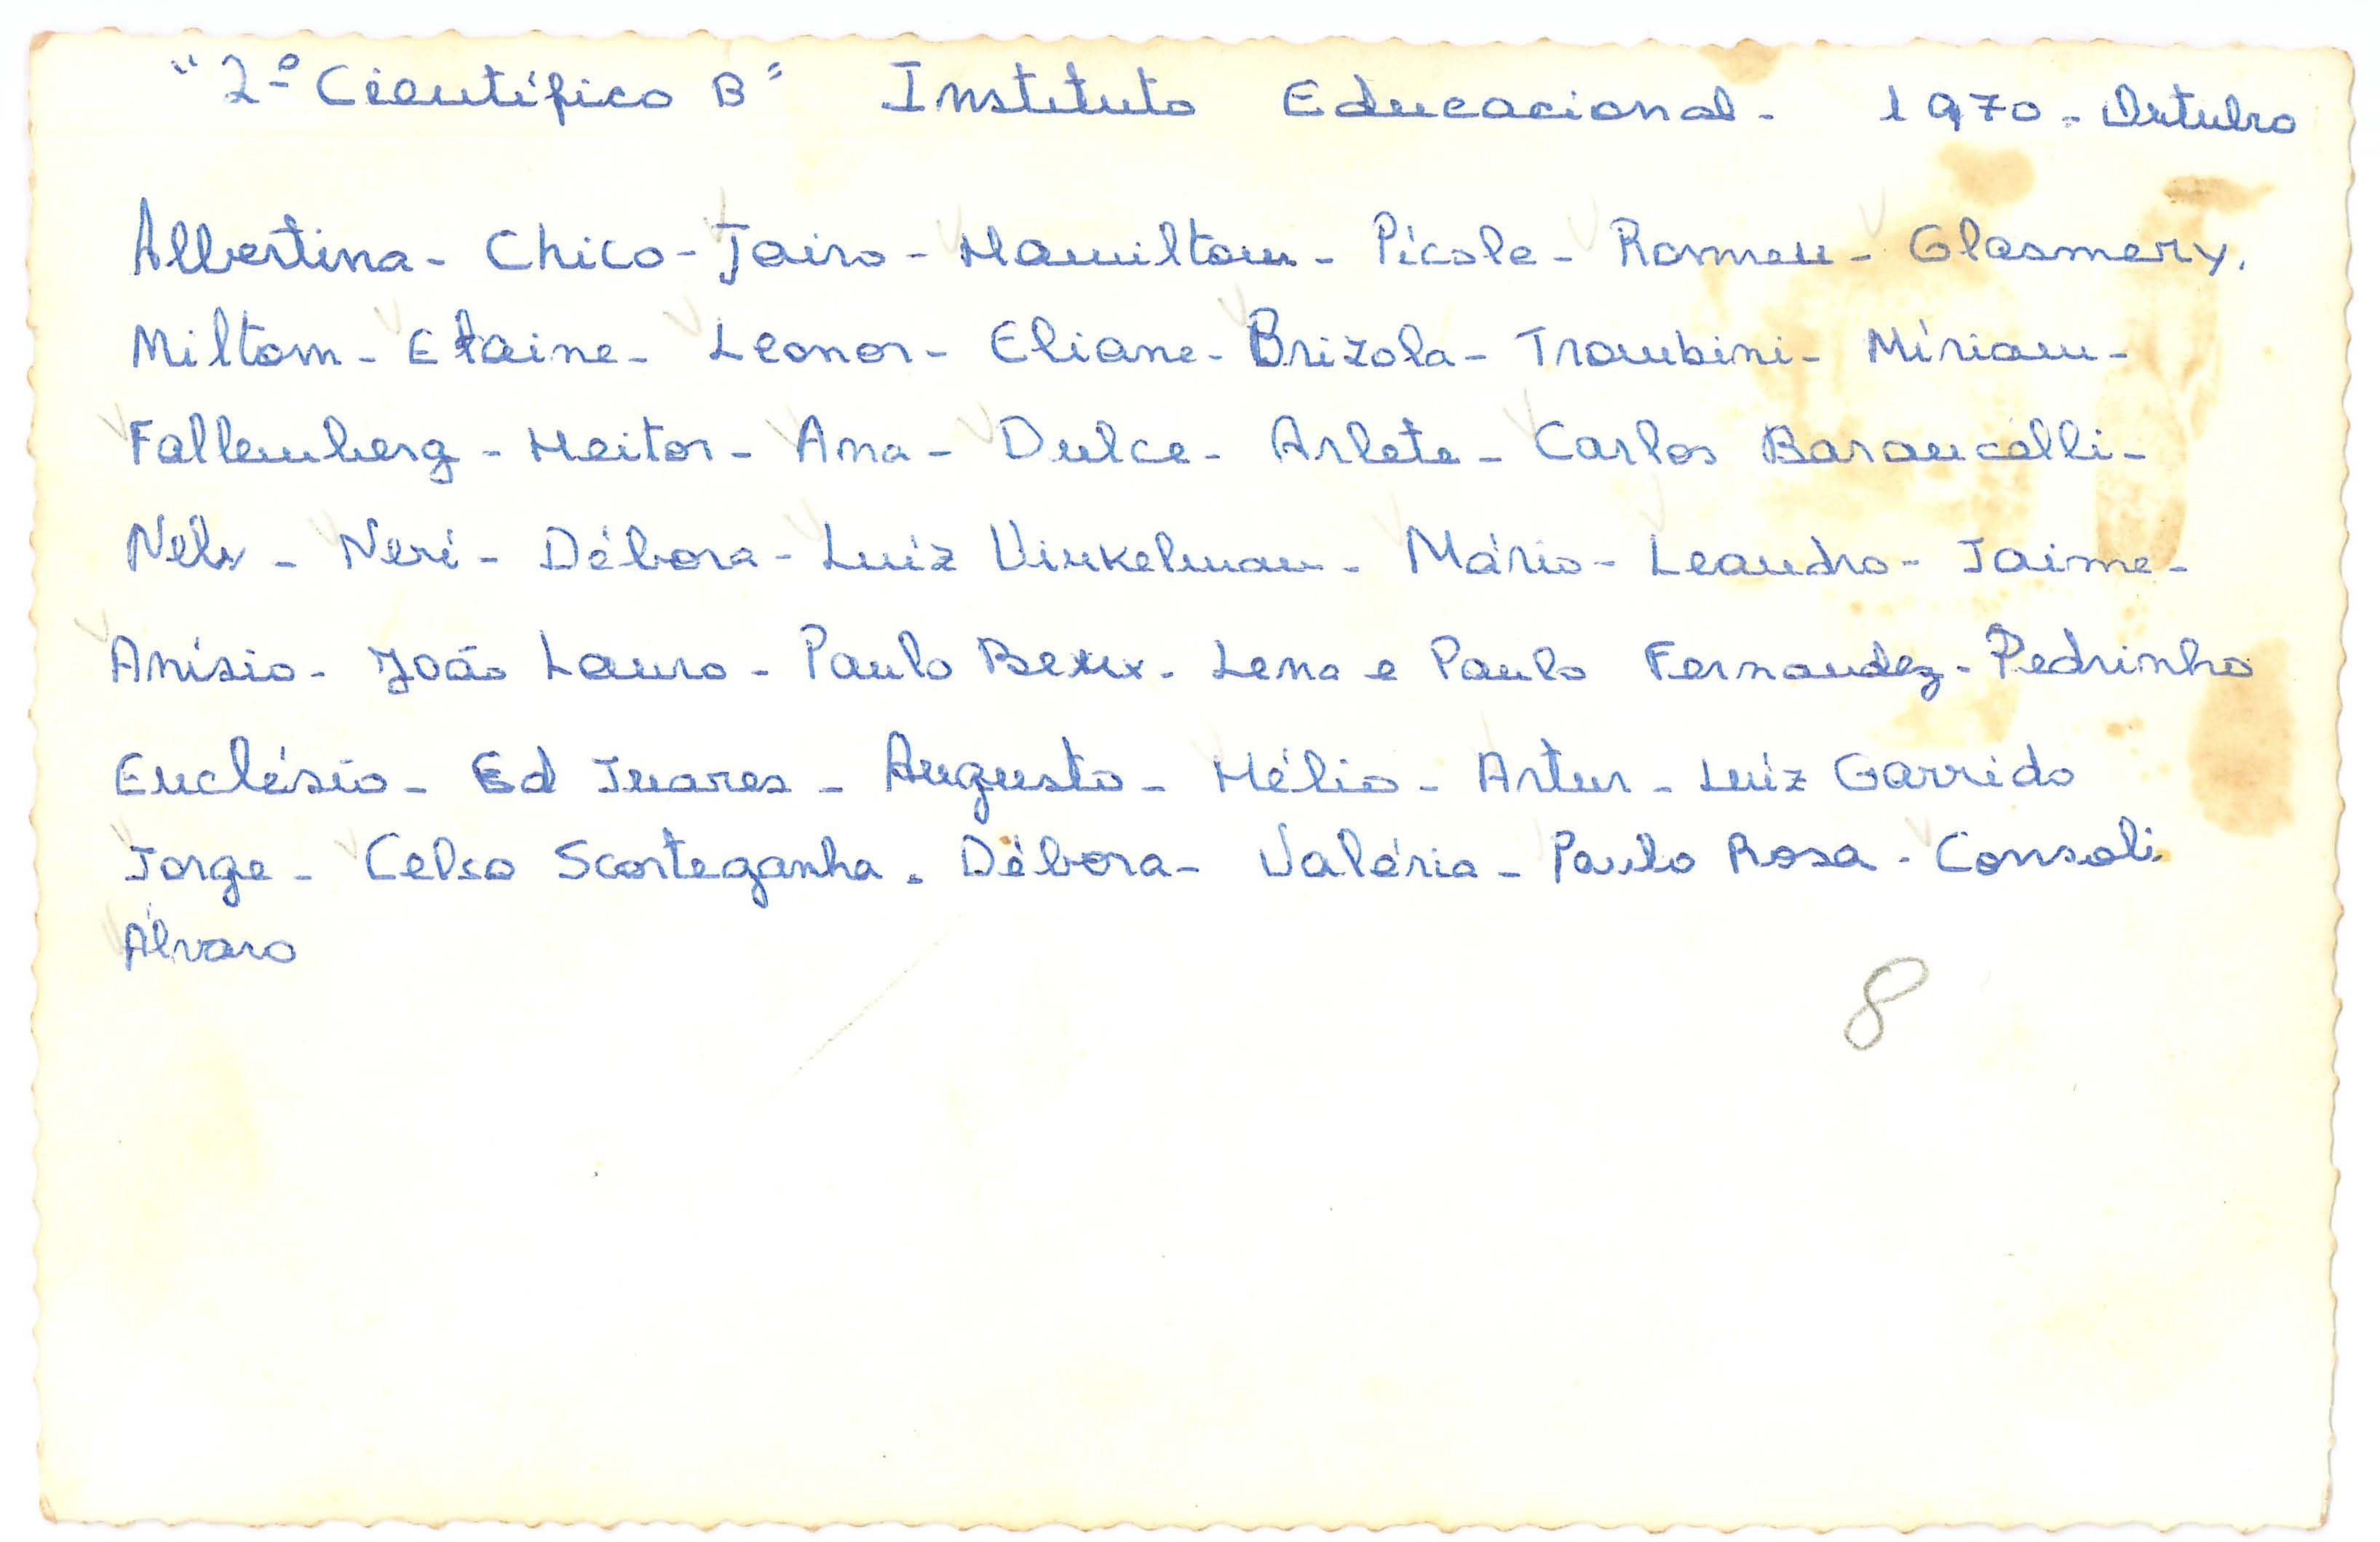 "2º Científico B" Instituto Educacional - 1970 - Outubro
Albertina - Chico - Jairo - Hamilton - Picole - Romeu - Glasmery.
Miltom - Elaine - Leonor - Eliane - Brizola - Trombini - Míriam -
Fallemberg - Heitor - Ana - Dulce - Arlete - Carlos Barancelli -
Neri - Débora - Luiz Vinkelman - Mário - Leandro - Jaime -
Anísio - João Lauro - Paulo - Lena e Paulo Fernandez - Pedrinho
Euclésio - Ed Juares - Augusto - Hélio - Artur - Luíz Garrido
Jorge - Celso Scorteganha. Débora - Valéria - Paulo Rosa - Consoli
Álvaro
8